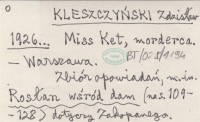 o
KLESZCZYŃSKI Zdzisław
1926... Miss Ket, morderca.
— Warszawa. BT/
Zbiór opowiadań, m.in.
Rostan wśród dam (nas. 109-
-128) dotyczy Zakopanego.